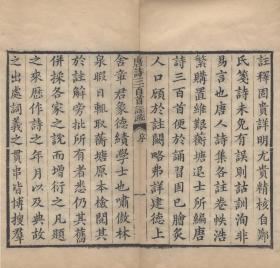 註釋固貴詳明尤貴精核自鄭
氏箋詩未免有誤則詁訓洵非
易言也唐人詩集各註卷帙浩
繁購置維艱蘅塘退士所編唐
詩三百首便於誦習固已膾炙
人口顧於註闕略弗詳建德上
唐詩三百首註疏 序 一
舍章君象德績學士也嘯傲林
泉暇日輒取蘅塘原本檢閱其
於註解旁批所有者悉仍其舊
併採各家之說而增衍之凡題
之來歷作詩之年月以及典故
之出處詞義之貫串皆博搜羣